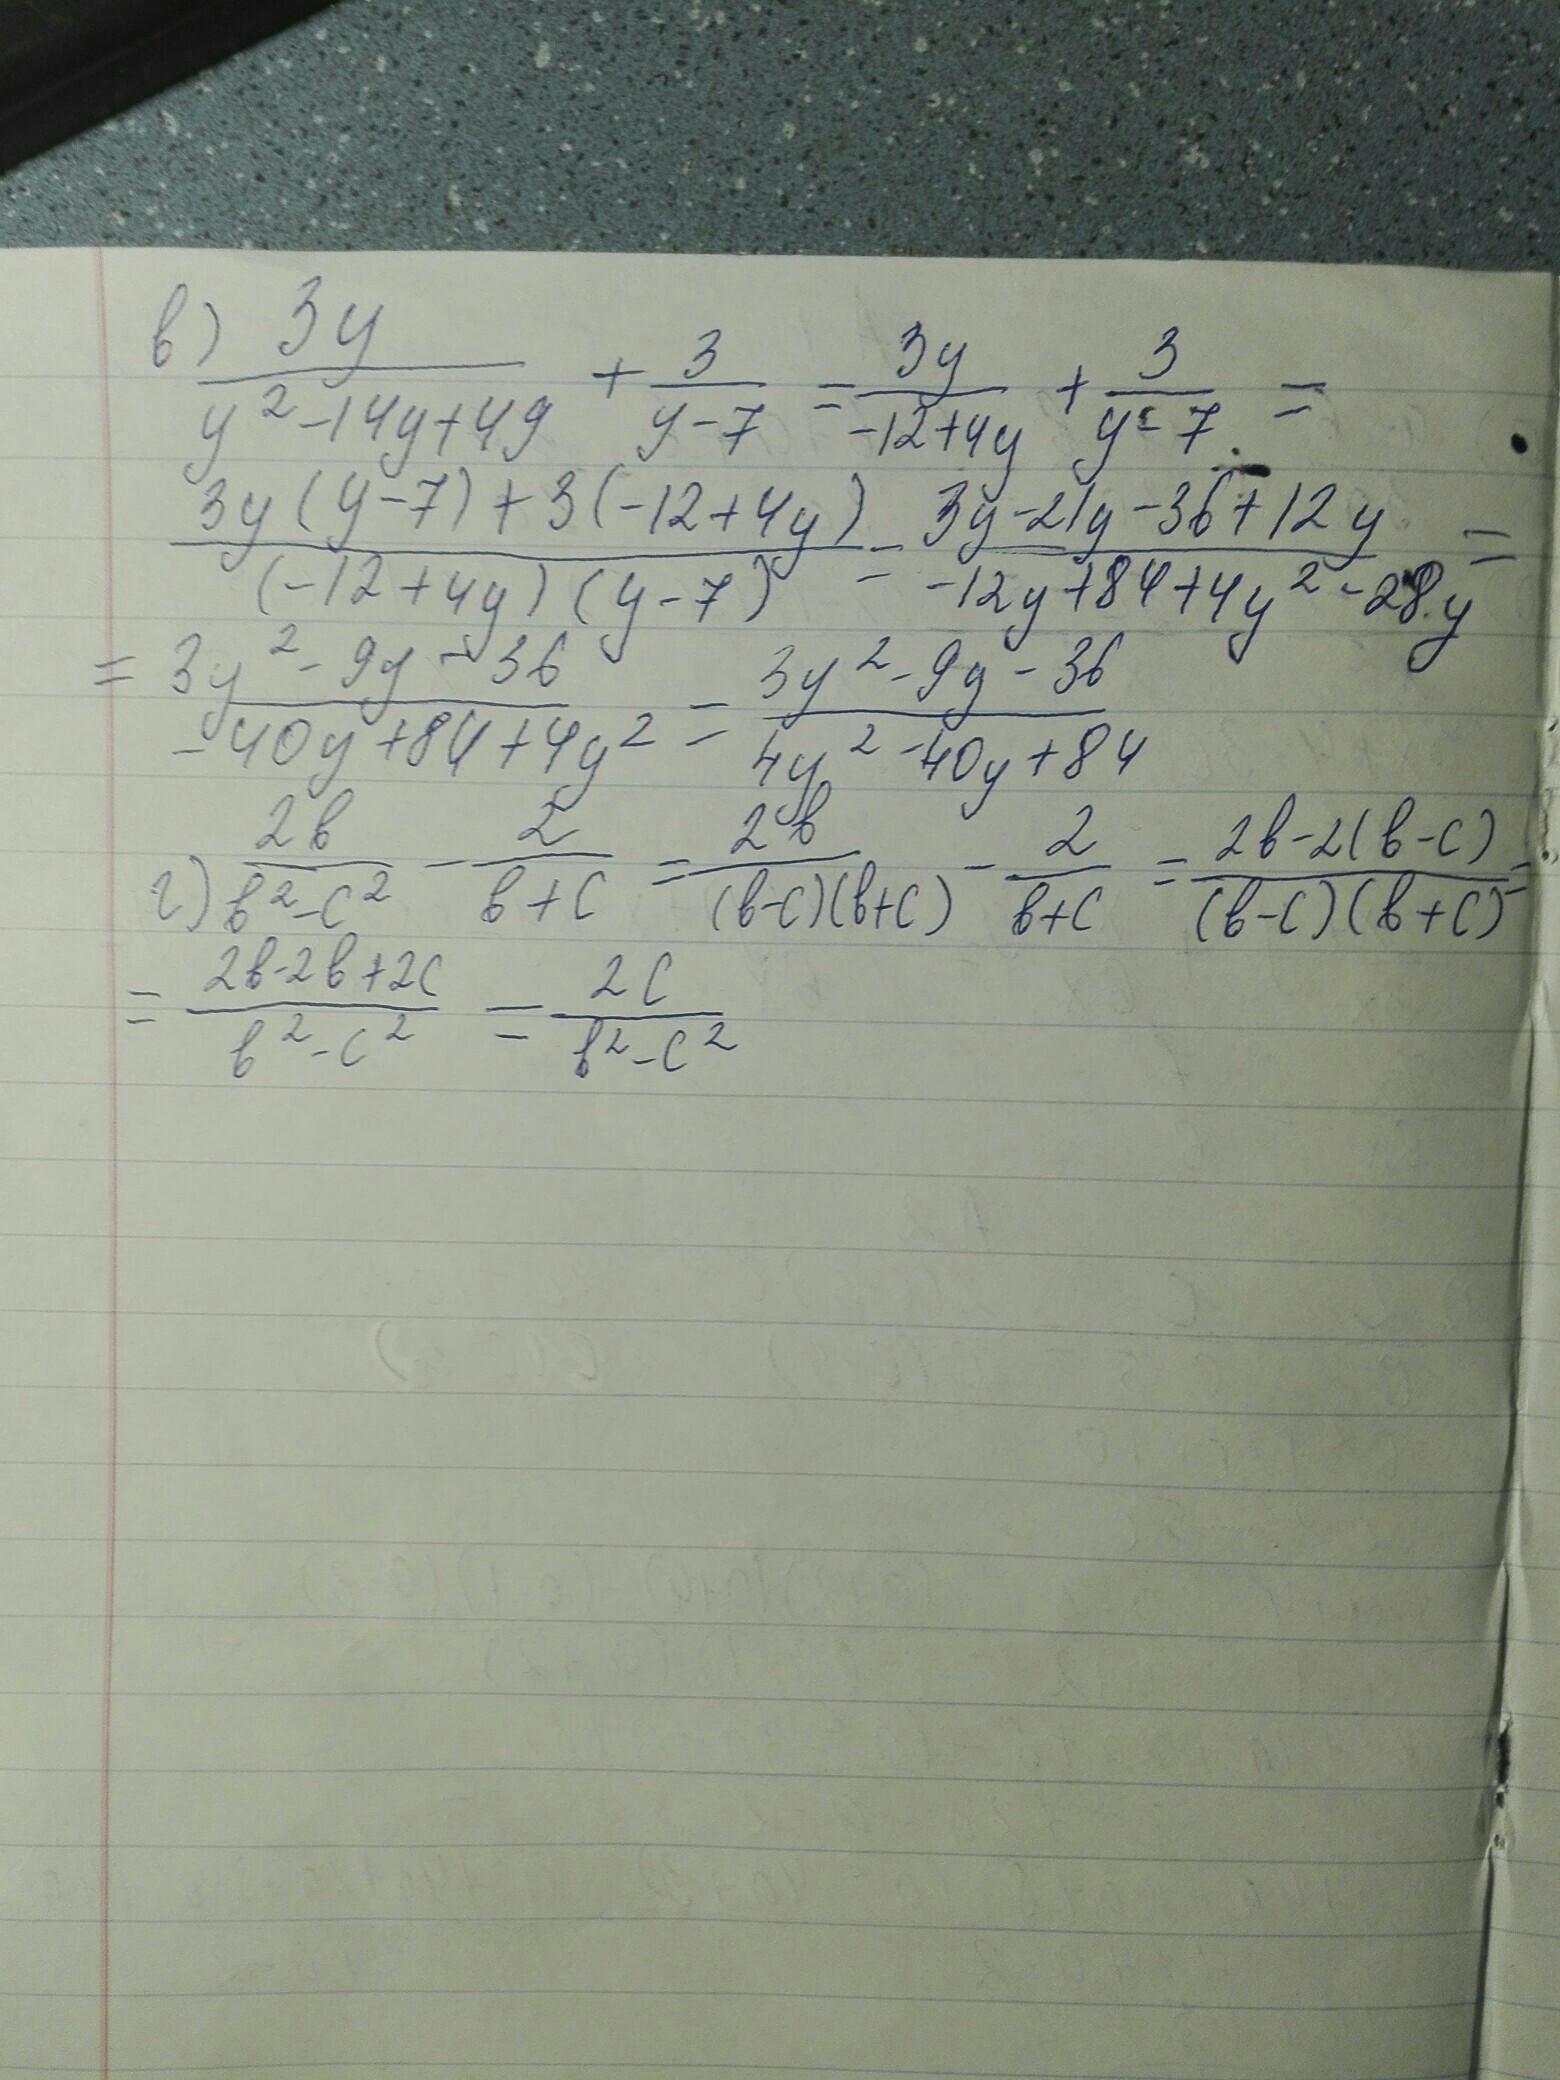 в) 3y/(y²-14y+49) + 3/(y-7) = 3y/(-12+4y) + 3/(y-7) =
(3y(y-7)+3(-12+4y))/((-12+4y)(y-7)) = (3y-21y-36+12y)/(-12y+84+4y²-28y) =
= (3y²-9y-36)/(-40y+84+4y²) = (3y²-9y-36)/(4y²-40y+84)
г) 2b/(b²-c²) - 2/(b+c) = 2b/((b-c)(b+c)) - 2/(b+c) = (2b-2(b-c))/((b-c)(b+c)) =
= (2b-2b+2c)/(b²-c²) = 2c/(b²-c²)